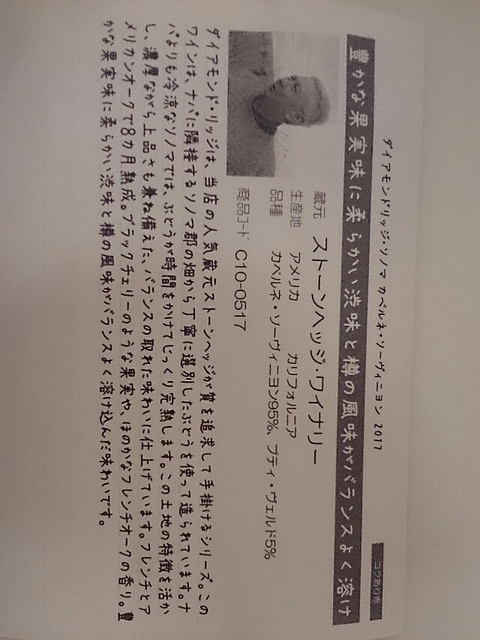 コクあり赤
ダイアモンドリッジ・ソノマ カベルネ・ソーヴィニヨン 2017
豊かな果実味に柔らかい渋味と樽の風味がバランスよく溶け
蔵元 ストーンヘッジ・ワイナリー
生産地 アメリカ カリフォルニア
品種 カベルネ・ソーヴィニヨン95%、プティ・ヴェルド5%
商品コード C10-0517
ダイアモンド・リッジは、当店の人気蔵元ストーンヘッジが質を追求して手掛けるシリーズ。この
ワインは、ナパに隣接するソノマ郡の畑から丁寧に選別したぶどうを使って造られています。ナ
パよりも冷涼なソノマでは、ぶどうが時間をかけてじっくり完熟します。この土地の特徴を活か
し、濃厚ながら上品さも兼ね備えた、バランスの取れた味わいに仕上げています。フレンチとア
メリカンオークで8カ月熟成。ブラックチェリーのような果実や、ほのかなフレンチオークの香り。豊
かな果実味に柔らかい渋味と樽の風味がバランスよく溶け込んだ味わいです。